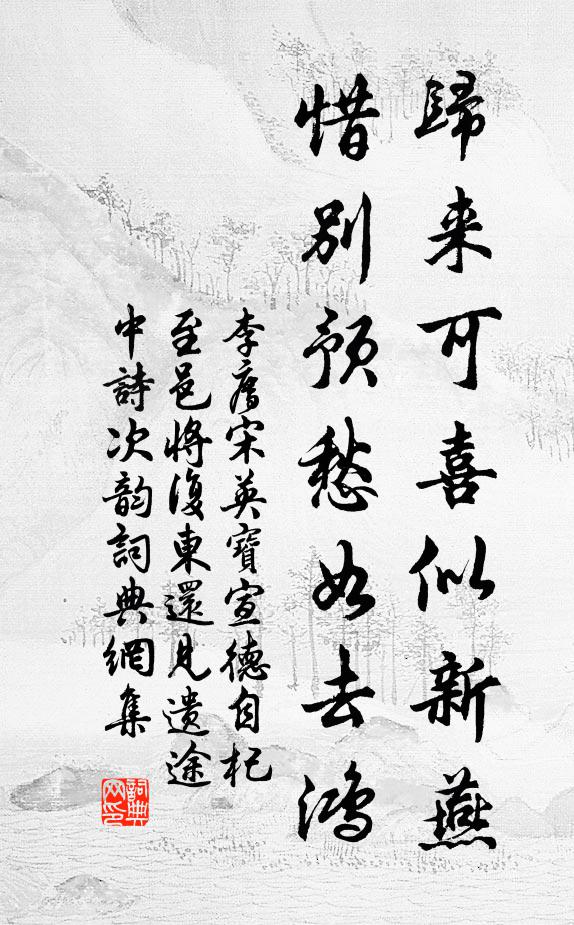 歸来可喜似新燕
惜別預愁如去鴻
李廌宋英寶宣德自杞
至邑將復東還見遗途
中詩次韵詞典網集
詞典网印